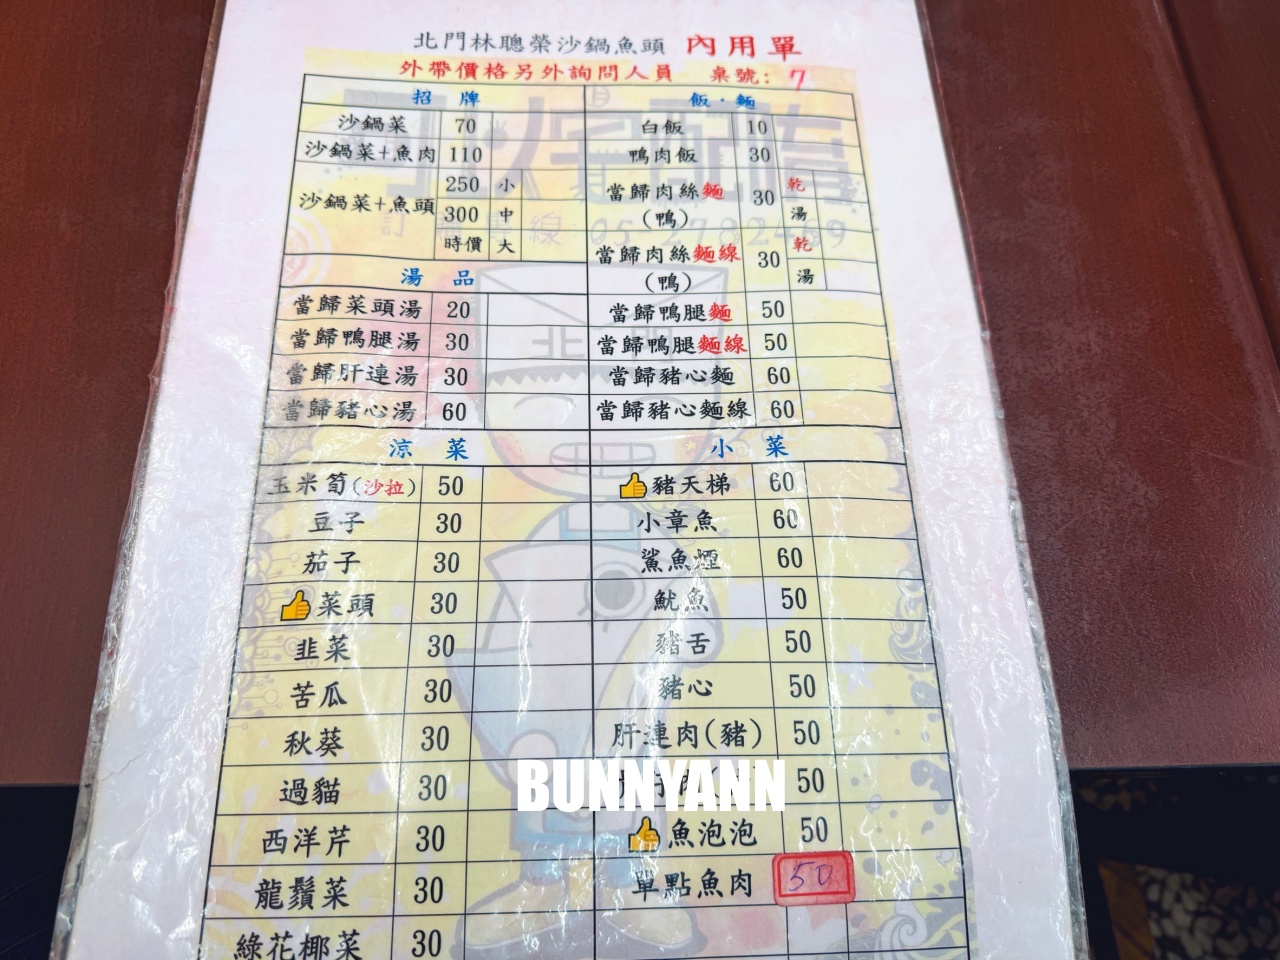 北門林聰榮沙鍋魚頭 內用單
外帶價格另外詢問人員 桌號: 7
招 牌
沙鍋菜 70
沙鍋菜+魚肉 110
沙鍋菜+魚頭 250 小
300 中
時價 大
湯 品
當歸菜頭湯 20
當歸鴨腿湯 30
當歸肝連湯 30
當歸豬心湯 60
涼 菜
玉米筍(沙拉) 50
豆子 30
茄子 30
👍菜頭 30
韭菜 30
苦瓜 30
秋葵 30
過貓 30
西洋芹 30
龍鬚菜 30
綠花椰菜 30
飯．麵
白飯 10
鴨肉飯 30
當歸肉絲麵(鴨) 30 乾
湯
當歸肉絲麵線(鴨) 30 乾
湯
當歸鴨腿麵 50
當歸鴨腿麵線 50
當歸豬心麵 60
當歸豬心麵線 60
小 菜
👍豬天梯 60
小章魚 60
鯊魚煙 60
魷魚 50
豬舌 50
豬心 50
肝連肉(豬) 50
50
👍魚泡泡 50
單點魚肉 50
BUNNYANN
北門
05-2782469